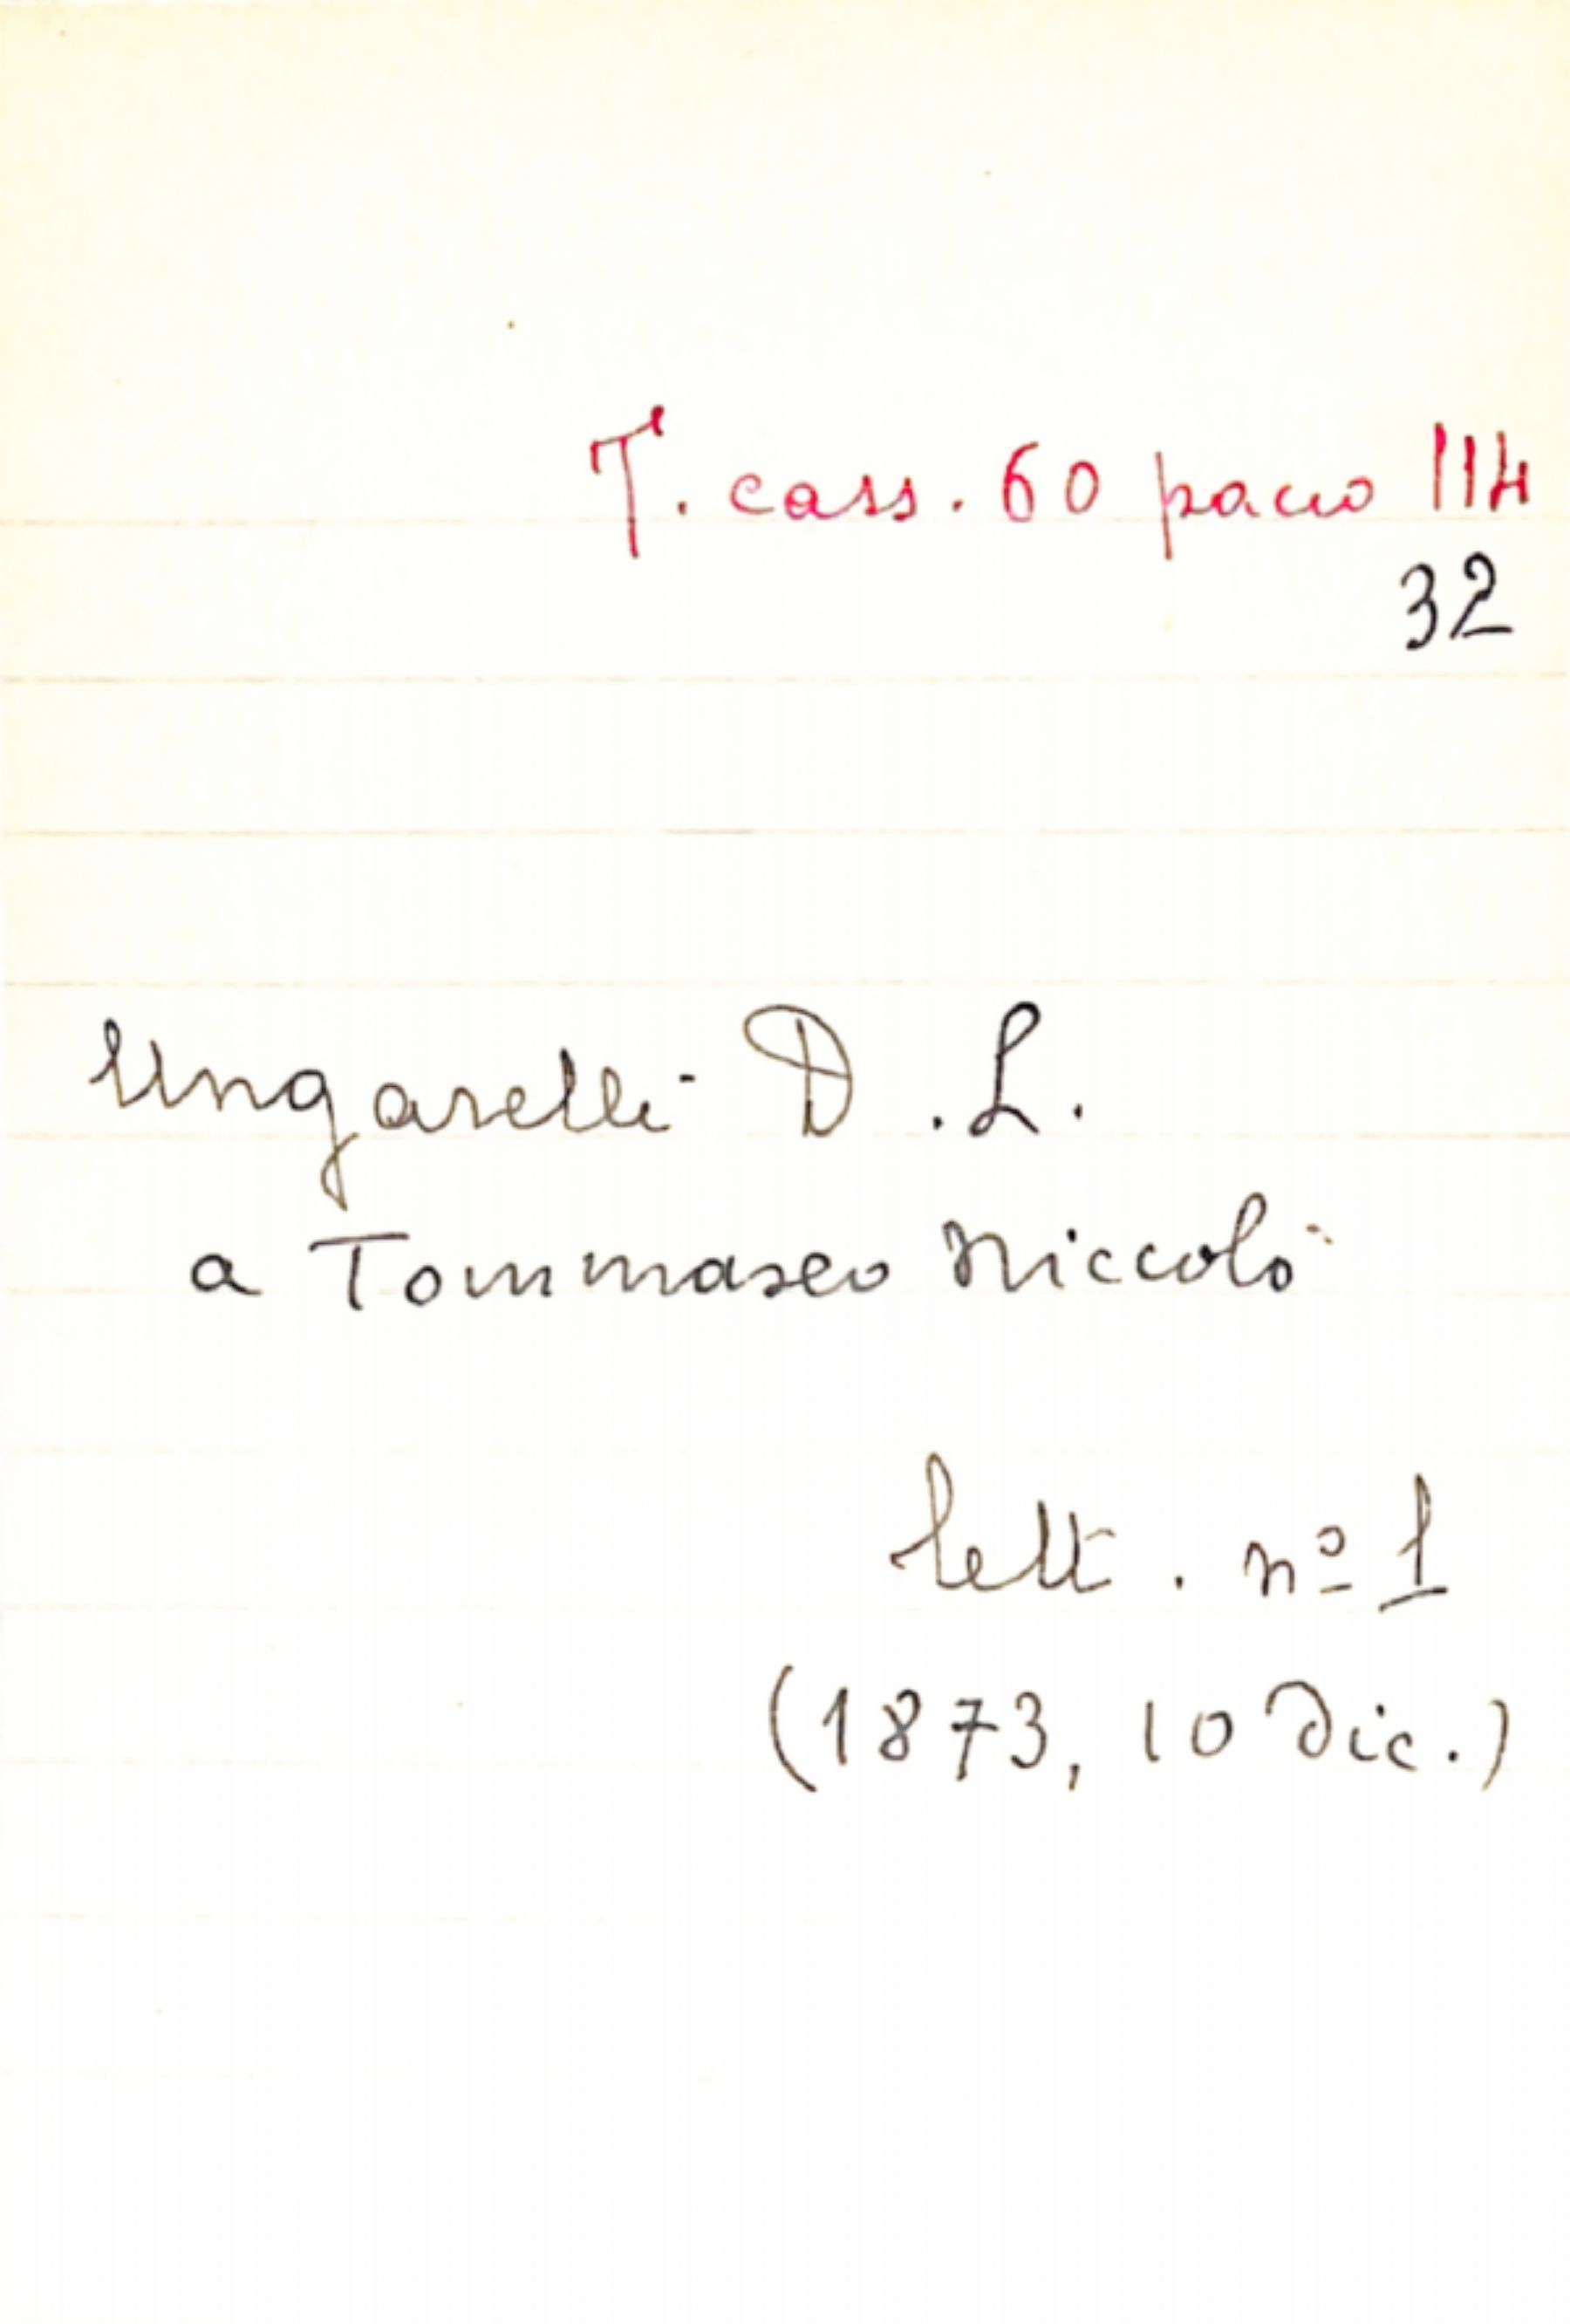 T. cass. 60 pacco 114
32
Ungarelli D. L.
a Tommaseo Niccolò
lett. nº 1
(1873, 10 dic.)